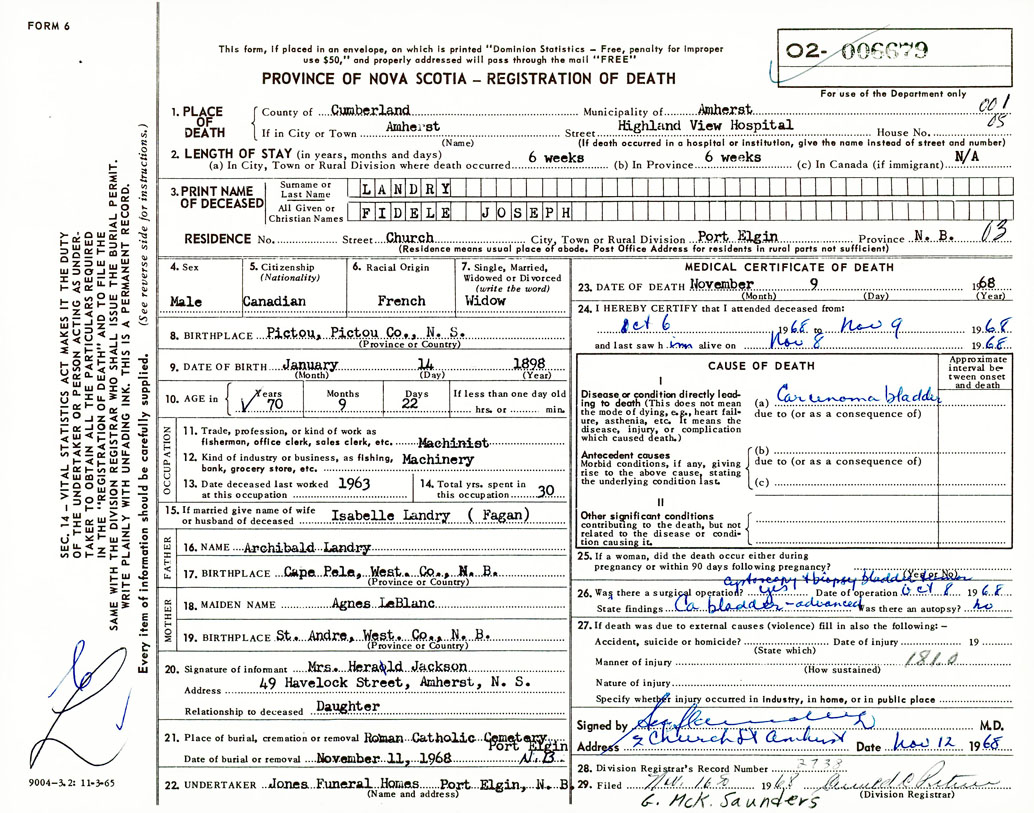 FORM 6
This form, if placed in an envelope, on which is printed "Dominion Statistics – Free, penalty for improper
use $50," and properly addressed will pass through the mail "FREE"
PROVINCE OF NOVA SCOTIA – REGISTRATION OF DEATH
O2- 006679
For use of the Department only
001
05
1. PLACE OF DEATH
County of Cumberland Municipality of Amherst
If in City or Town Amherst Street Highland View Hospital House No.
(Name) (If death occurred in a hospital or institution, give the name instead of street and number)
2. LENGTH OF STAY (in years, months and days)
(a) In City, Town or Rural Division where death occurred 6 weeks (b) In Province 6 weeks (c) In Canada (if immigrant) N/A
3. PRINT NAME OF DECEASED
Surname or Last Name LANDRY
All Given or Christian Names FIDELE JOSEPH
RESIDENCE No. Street Church City, Town or Rural Division Port Elgin Province N. B. 03
(Residence means usual place of abode. Post Office Address for residents in rural parts not sufficient)
4. Sex Male
5. Citizenship (Nationality) Canadian
6. Racial Origin French
7. Single, Married, Widowed or Divorced (write the word) Widow
8. BIRTHPLACE Pictou, Pictou Co., N. S.
(Province or Country)
9. DATE OF BIRTH January 14 1898
(Month) (Day) (Year)
10. AGE in Years 70 Months 9 Days 22 If less than one day old hrs. or min.
OCCUPATION
11. Trade, profession, or kind of work as
fisherman, office clerk, sales clerk, etc. Machinist
12. Kind of industry or business, as fishing,
bank, grocery store, etc. Machinery
13. Date deceased last worked at this occupation 1963
14. Total yrs. spent in this occupation 30
15. If married give name of wife or husband of deceased Isabelle Landry ( Fagan)
FATHER
16. NAME Archibald Landry
17. BIRTHPLACE Cape Pele, West. Co., N. B.
(Province or Country)
MOTHER
18. MAIDEN NAME Agnes LeBlanc
19. BIRTHPLACE St. Andre, West. Co., N. B.
(Province or Country)
20. Signature of informant Mrs. Herald Jackson
Address 49 Havelock Street, Amherst, N. S.
Relationship to deceased Daughter
21. Place of burial, cremation or removal Roman Catholic Cemetery
Port Elgin
Date of burial or removal November 11, 1968 N.B.
22. UNDERTAKER Jones Funeral Homes Port Elgin, N. B.
(Name and address)
MEDICAL CERTIFICATE OF DEATH
23. DATE OF DEATH November 9 1968
(Month) (Day) (Year)
24. I HEREBY CERTIFY that I attended deceased from:
Oct 6 1968 to Nov 9 1968
and last saw him alive on Nov 8 1968
CAUSE OF DEATH
Approximate interval between onset and death
I
Disease or condition directly leading to death (This does not mean
the mode of dying, e.g., heart failure, asthenia, etc. It means the
disease, injury, or complication which caused death.)
(a) Carcenoma bladder
due to (or as a consequence of)
Antecedent causes
Morbid conditions, if any, giving rise to the above cause, stating
the underlying condition last.
(b)
due to (or as a consequence of)
(c)
II
Other significant conditions
contributing to the death, but not related to the disease or condition causing it.
25. If a woman, did the death occur either during
pregnancy or within 90 days following pregnancy?
(Yes or No)
cystoscopy & biopsy bladder
26. Was there a surgical operation? yes Date of operation Oct 8 1968
State findings Ca bladder - advanced Was there an autopsy? no
27. If death was due to external causes (violence) fill in also the following: –
Accident, suicide or homicide? Date of injury 19
(State which)
Manner of injury 181.0
(How sustained)
Nature of injury
Specify whether injury occurred in industry, in home, or in public place
Signed by M.D.
Address 2 Church St Amherst Date Nov 12 1968
28. Division Registrar's Record Number 2738
29. Filed 1968
(Division Registrar)
G. McK. Saunders
SEC. 14 – VITAL STATISTICS ACT MAKES IT THE DUTY
OF THE UNDERTAKER OR PERSON ACTING AS UNDER-
TAKER TO OBTAIN ALL THE PARTICULARS REQUIRED
IN THE "REGISTRATION OF DEATH" AND TO FILE THE
SAME WITH THE DIVISION REGISTRAR WHO SHALL ISSUE THE BURIAL PERMIT.
WRITE PLAINLY WITH UNFADING INK. THIS IS A PERMANENT RECORD.
Every item of information should be carefully supplied. (See reverse side for instructions.)
9004-3.2: 11-3-65